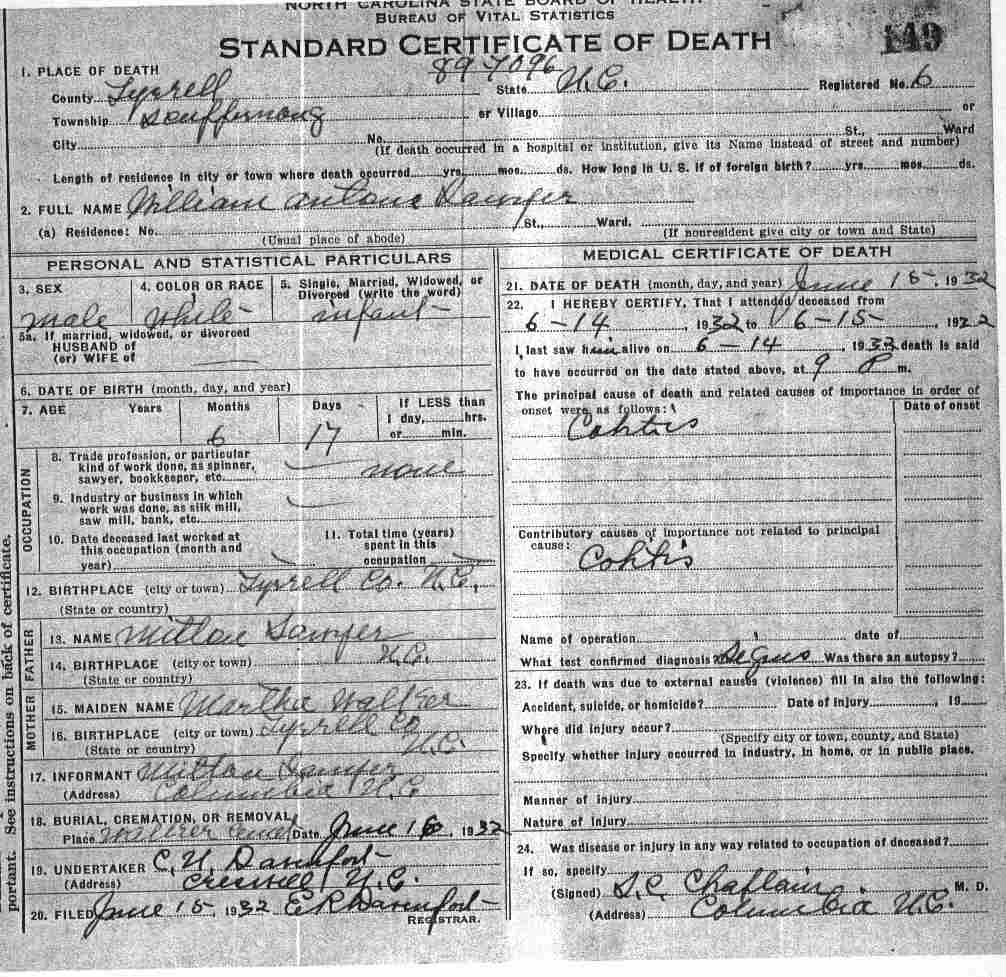 NORTH CAROLINA STATE BOARD OF HEALTH
BUREAU OF VITAL STATISTICS
STANDARD CERTIFICATE OF DEATH
149
89 7096
1. PLACE OF DEATH
County Tyrrell State N.C. Registered No. 6
Township Scuppernong or Village or
City No. St., Ward
(If death occurred in a hospital or institution, give its Name instead of street and number)
Length of residence in city or town where death occurred yrs. mos. ds. How long in U. S. if of foreign birth? yrs. mos. ds.
2. FULL NAME William Antone Sawyer
(a) Residence: No. St., Ward.
(Usual place of abode) (If nonresident give city or town and State)
PERSONAL AND STATISTICAL PARTICULARS
3. SEX 4. COLOR OR RACE 5. Single, Married, Widowed, or Divorced (write the word)
male white infant
5a. If married, widowed, or divorced
HUSBAND of
(or) WIFE of
6. DATE OF BIRTH (month, day, and year)
7. AGE Years Months Days If LESS than
1 day, hrs.
or min.
6 17
OCCUPATION
8. Trade profession, or particular
kind of work done, as spinner,
sawyer, bookkeeper, etc. none
9. Industry or business in which
work was done, as silk mill,
saw mill, bank, etc.
10. Date deceased last worked at
this occupation (month and
year)
11. Total time (years)
spent in this
occupation
12. BIRTHPLACE (city or town) Tyrrell Co. N.C.
(State or country)
FATHER
13. NAME Sawyer
14. BIRTHPLACE (city or town) N.C.
(State or country)
MOTHER
15. MAIDEN NAME Martha Walker
16. BIRTHPLACE (city or town) Tyrrell Co
(State or country) N.C.
17. INFORMANT Sawyer
(Address) Columbia N.C
18. BURIAL, CREMATION, OR REMOVAL
Place Date June 16, 1932
19. UNDERTAKER Davenport
(Address) Creswell N.C.
20. FILED June 15, 1932 E R Davenport
REGISTRAR.
MEDICAL CERTIFICATE OF DEATH
21. DATE OF DEATH (month, day, and year) June 15, 1932
22. I HEREBY CERTIFY, That I attended deceased from
6-14, 1932 to 6-15, 1932
I last saw him alive on 6-14, 1932 death is said
to have occurred on the date stated above, at 9 P m.
The principal cause of death and related causes of importance in order of
onset were as follows: Date of onset
Colitis
Contributory causes of importance not related to principal
cause:
Colitis
Name of operation date of
What test confirmed diagnosis? Signs Was there an autopsy?
23. If death was due to external causes (violence) fill in also the following:
Accident, suicide, or homicide? Date of Injury, 19
Where did injury occur?
(Specify city or town, county, and State)
Specify whether injury occurred in industry, in home, or in public place.
Manner of injury
Nature of injury
24. Was disease or injury in any way related to occupation of deceased?
If so, specify
(Signed) S.C. Chaplain M. D.
(Address) Columbia N.C.
portant. See instructions on back of certificate.